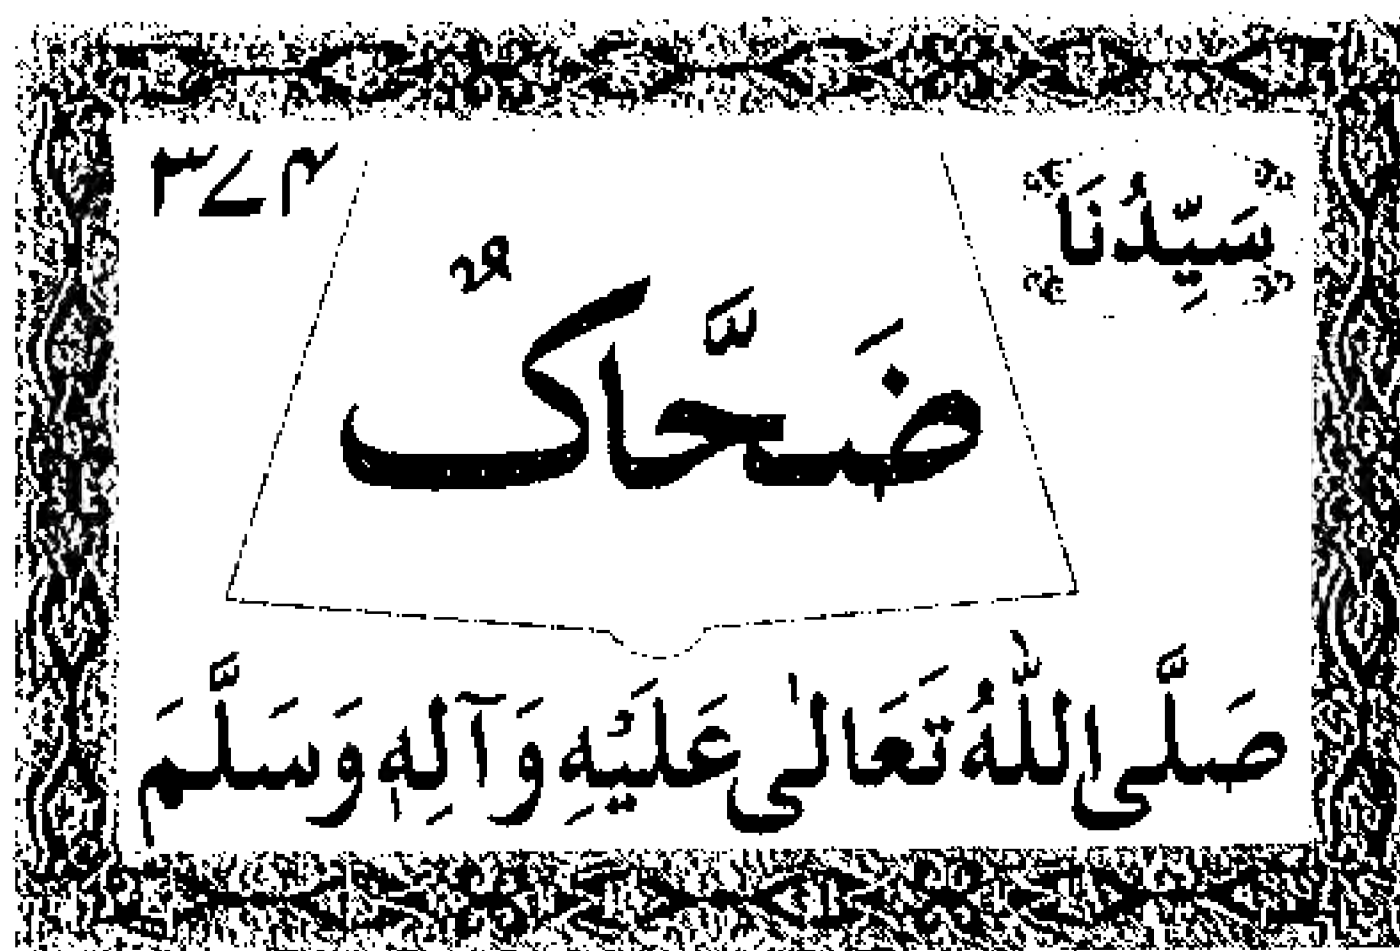 سَيِّدُنَا
۳۷۴
ضَحَّاکٌ
صَلَّى اللّٰهُ تَعَالٰى عَلَيْهِ وَآلِهٖ وَسَلَّمَ